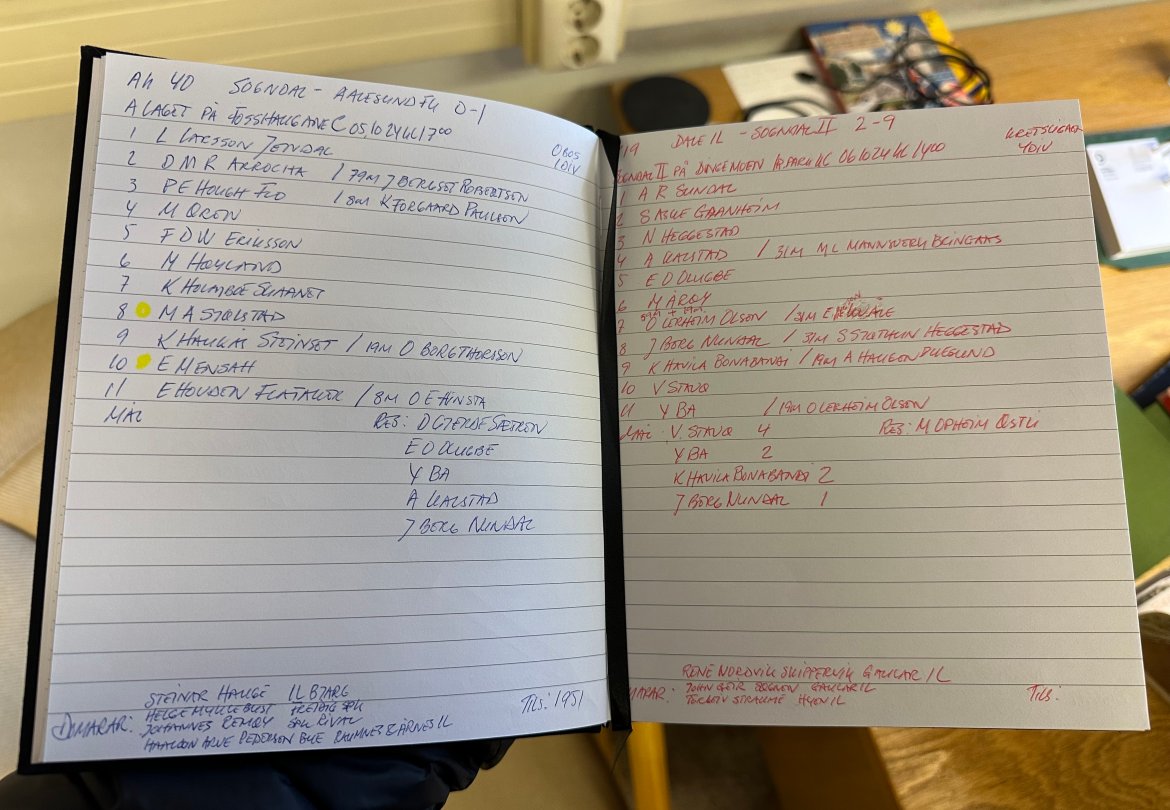 Ah 40 SOGNDAL - AALESUND FK 0-1
A LAGET PÅ FOSSHAUGANE C 05 10 24 kl 17 00
OBOS
1 DIV
1 L LARSSON JENDAL
2 D M R ARROCHA / 79M J BERGSET ROBERTSON
3 P E HOUGH FLO / 8M K FORGAARD PAULSEN
4 M ØREN
5 F D W ERIKSSON
6 M HØYLAND
7 K HOLMBOE SKAANET
8 M A STØLSTAD
9 K HAUGAS STEINSET / 19M O BORGTHORSSON
10 E MENSAH
11 E HOVDEN FLATAKER / 8M O E FINSTA
MÅL RES: D GJERDE SÆTREN
E O OLUGBE
Y BA
A KALSTAD
J BERG NUNDAL
STEINAR HAUGE IL BJARG
HELGE MYKLEBUST FREIDIG SPK
DOMARAR: JOHANNES REMØY SPK RIVAL
HAAKON ARVE PEDERSEN BUE RAUMNES & ÅRNES IL
TILS: 1951
19 DALE IL - SOGNDAL II 2-9
4 DIV
SOGNDAL II PÅ DINGEMOEN IR PARK KG 06 10 24 kl 14 00
1 A R SUNDAL
2 S ASKE GAANHEIM
3 N HEGGESTAD
4 A KALSTAD / 31M M L MANNSVERK BRINGAAS
5 E O OLUGBE
6 M ÅRØY
7 O LERHEIM OLSON / 31M E
8 J BERG NUNDAL / 31M S STØTHUN HEGGESTAD
9 K HAVILA BONABANDI / 19M A HAUGEN
10 V STAVØ
11 Y BA / 19M O LERHEIM OLSON
MÅL V. STAVØ 4 RES: M OPHEIM ØSTLI
Y BA 2
K HAVILA BONABANDI 2
J BERG NUNDAL 1
RENÉ NORDVIK SKIPPERVIK GAULAR IL
DOMARAR: JOHN GEIR SØGNEN GAULAR IL
TORLEIV STRAUME HYEN IL
TILS: